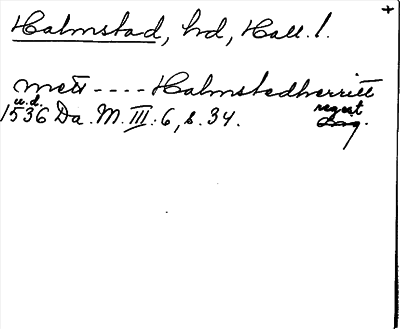 +
Halmstad, hd, Hall. l.
mett ---- Halmstedherritt
u.d. regest
1536 Da. M. III: 6, s. 34.